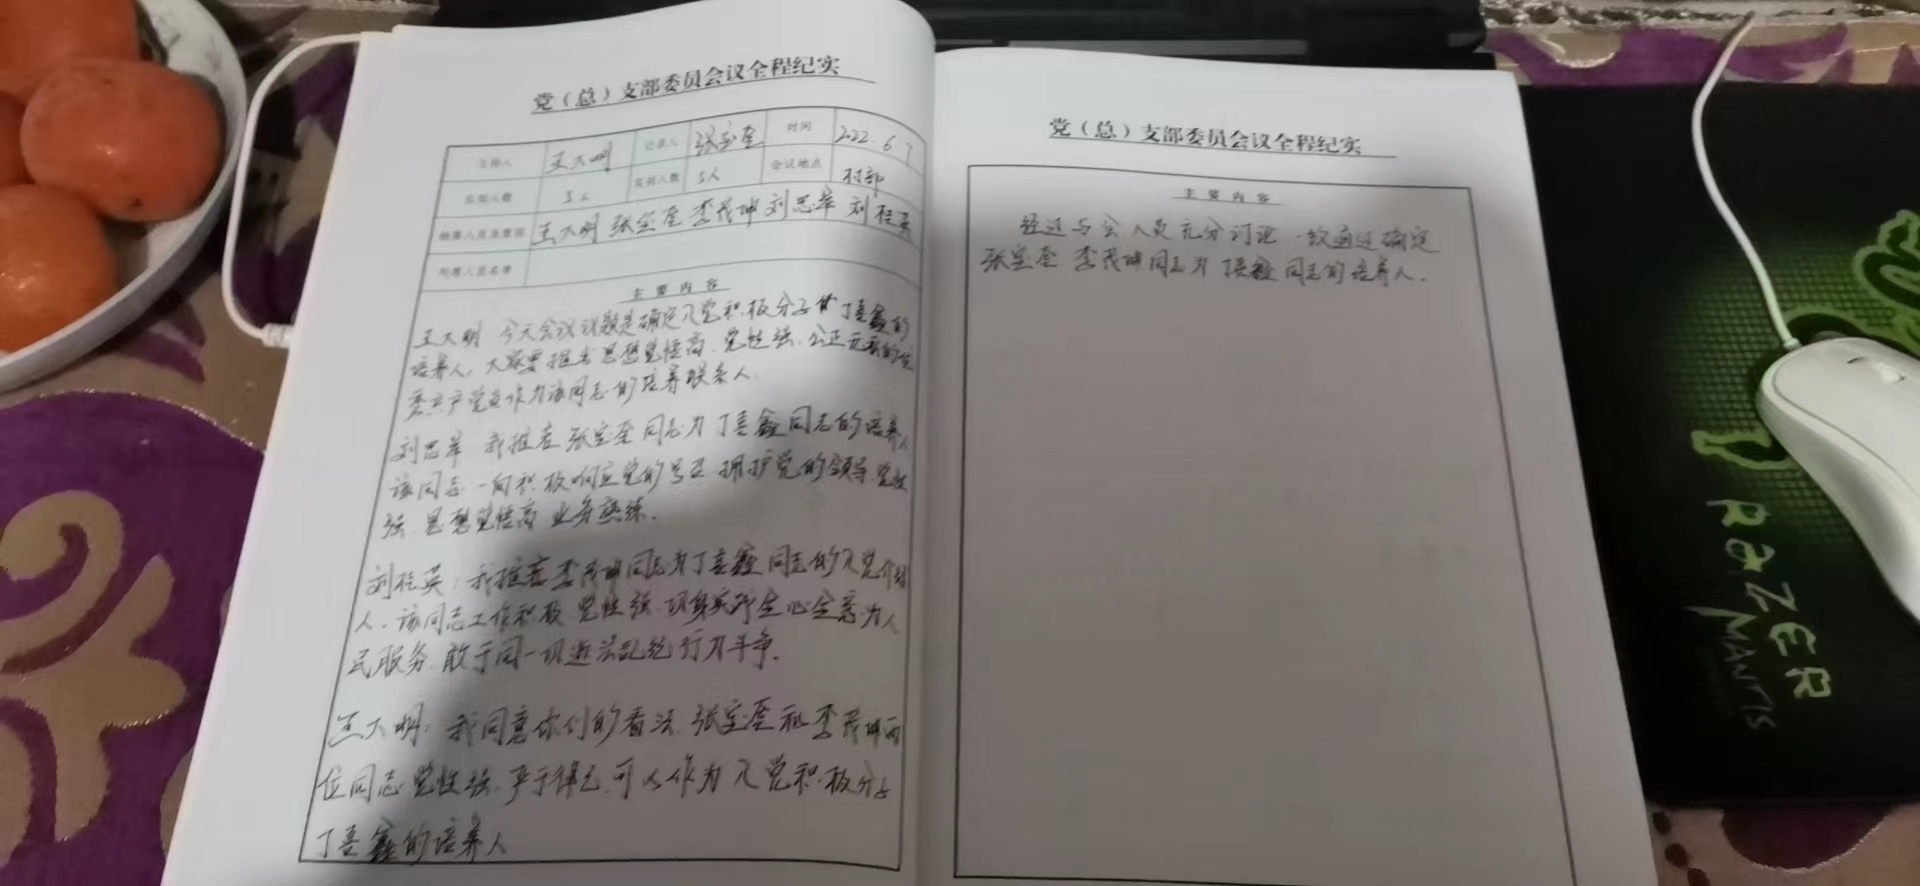 党（总）支部委员会议全程纪实
主持人 王大明 记录人 张宝奎 时间 2022.6.7
应到人数 5人 实到人数 5人 会议地点 村部
缺席人员及原因 王大明 张宝奎 李茂坤 刘思举 刘桂英
列席人员名单
主要内容
王大明 今天会议议题是确定入党积极分子 丁喜鑫的
培养人，大家要推出思想觉悟高、党性强、公正无私的优
秀共产党员作为该同志的培养联系人.
刘思举 我推荐张宝奎同志为丁喜鑫同志的培养人
该同志一向积极响应党的号召 拥护党的领导 党性
强 思想觉悟高 业务熟练.
刘桂英：我推荐李茂坤同志为丁喜鑫同志的入党介绍
人. 该同志工作积极 党性强 切身实践全心全意为人
民服务 敢于同一切违法乱纪行为斗争.
王大明：我同意你们的看法 张宝奎和李茂坤两
位同志党性强 严于律己 可以作为入党积极分子
丁喜鑫的培养人
党（总）支部委员会议全程纪实
主要内容
经过与会人员充分讨论 一致通过确定
张宝奎 李茂坤同志为丁喜鑫同志的培养人.
RAZER
MANTIS